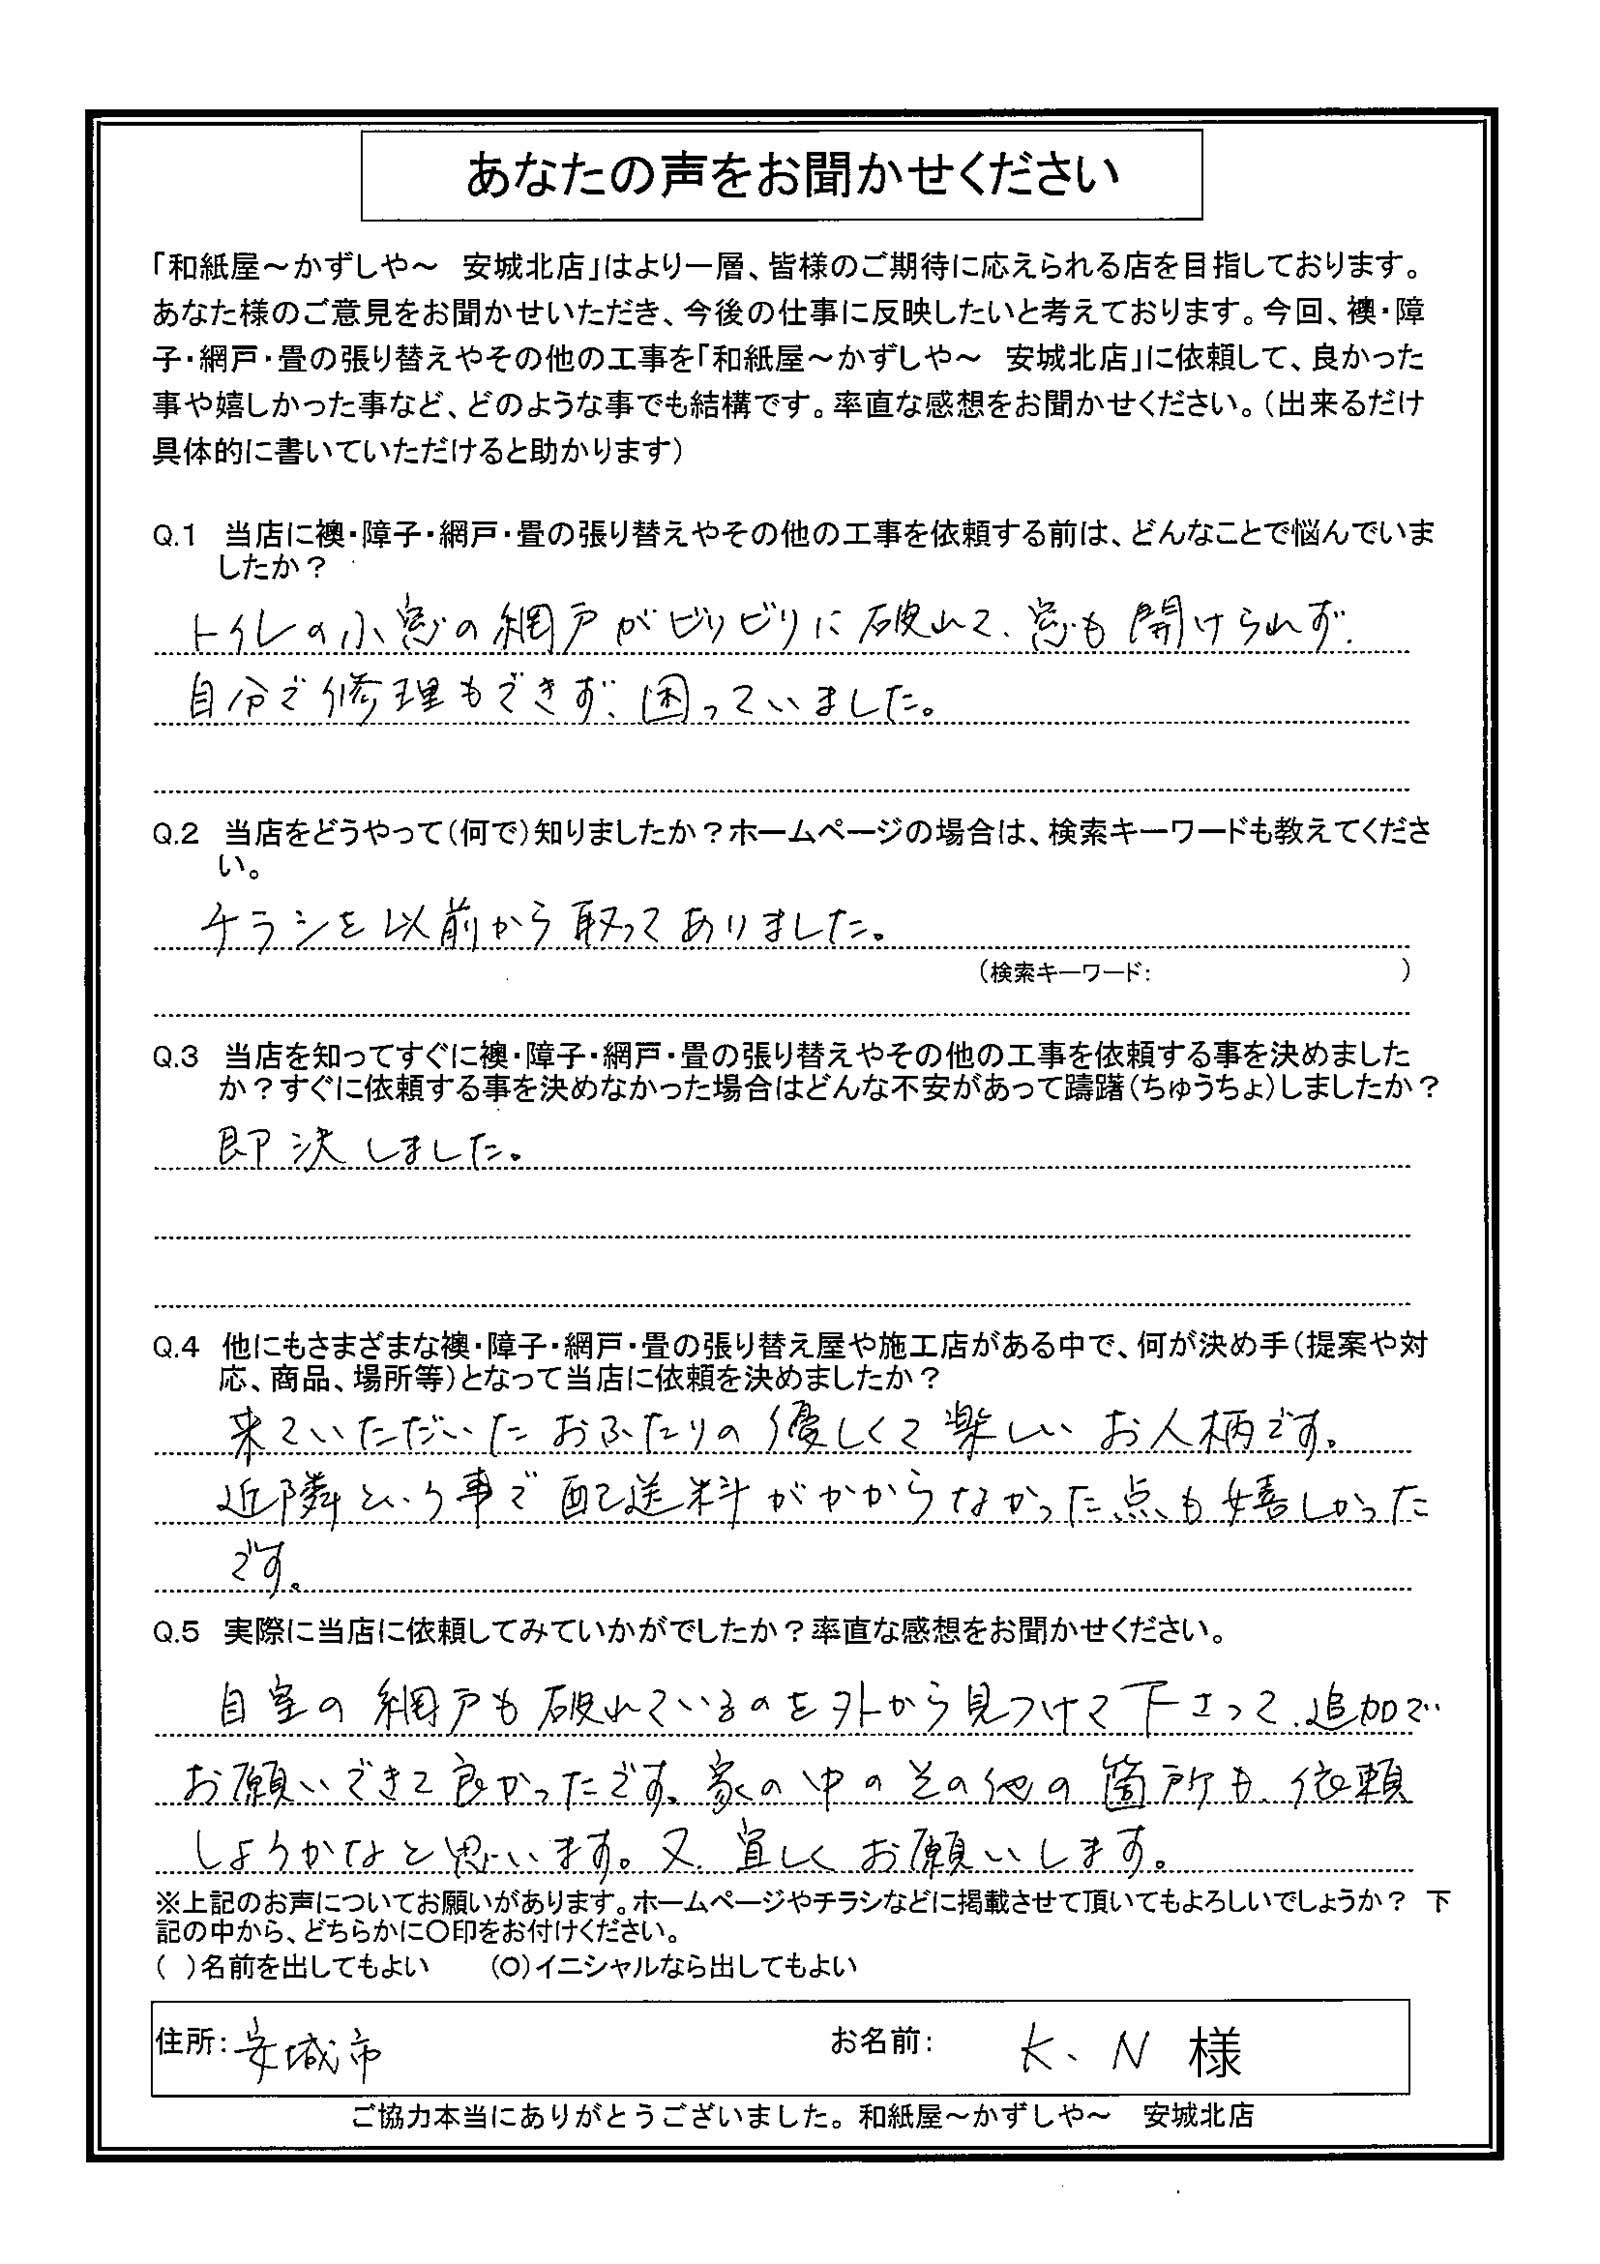 あなたの声をお聞かせください
「和紙屋～かずしや～　安城北店」はより一層、皆様のご期待に応えられる店を目指しております。
あなた様のご意見をお聞かせいただき、今後の仕事に反映したいと考えております。今回、襖・障
子・網戸・畳の張り替えやその他の工事を「和紙屋～かずしや～　安城北店」に依頼して、良かった
事や嬉しかった事など、どのような事でも結構です。率直な感想をお聞かせください。（出来るだけ
具体的に書いていただけると助かります）
Q.1　当店に襖・障子・網戸・畳の張り替えやその他の工事を依頼する前は、どんなことで悩んでいま
したか？
トイレの小窓の網戸がビリビリに破れて、窓も開けられず、
自分で修理もできず、困っていました。
Q.2　当店をどうやって（何で）知りましたか？ホームページの場合は、検索キーワードも教えてくださ
い。
チラシを以前から取ってありました。
（検索キーワード：　　　　　　　　）
Q.3　当店を知ってすぐに襖・障子・網戸・畳の張り替えやその他の工事を依頼する事を決めました
か？すぐに依頼する事を決めなかった場合はどんな不安があって躊躇（ちゅうちょ）しましたか？
即決しました。
Q.4　他にもさまざまな襖・障子・網戸・畳の張り替え屋や施工店がある中で、何が決め手（提案や対
応、商品、場所等）となって当店に依頼を決めましたか？
来ていただいたおふたりの優しくて楽しいお人柄です。
近隣という事で配送料がかからなかった点も嬉しかった
です。
Q.5　実際に当店に依頼してみていかがでしたか？率直な感想をお聞かせください。
自室の網戸も破れているのを外から見つけて下さって、追加で
お願いできて良かったです。家の中のその他の箇所も、依頼
しようかなと思います。又、宜しくお願いします。
※上記のお声についてお願いがあります。ホームページやチラシなどに掲載させて頂いてもよろしいでしょうか？　下
記の中から、どちらかに〇印をお付けください。
（　）名前を出してもよい　　（〇）イニシャルなら出してもよい
住所：安城市　　お名前：　K、N 様
ご協力本当にありがとうございました。和紙屋～かずしや～　安城北店